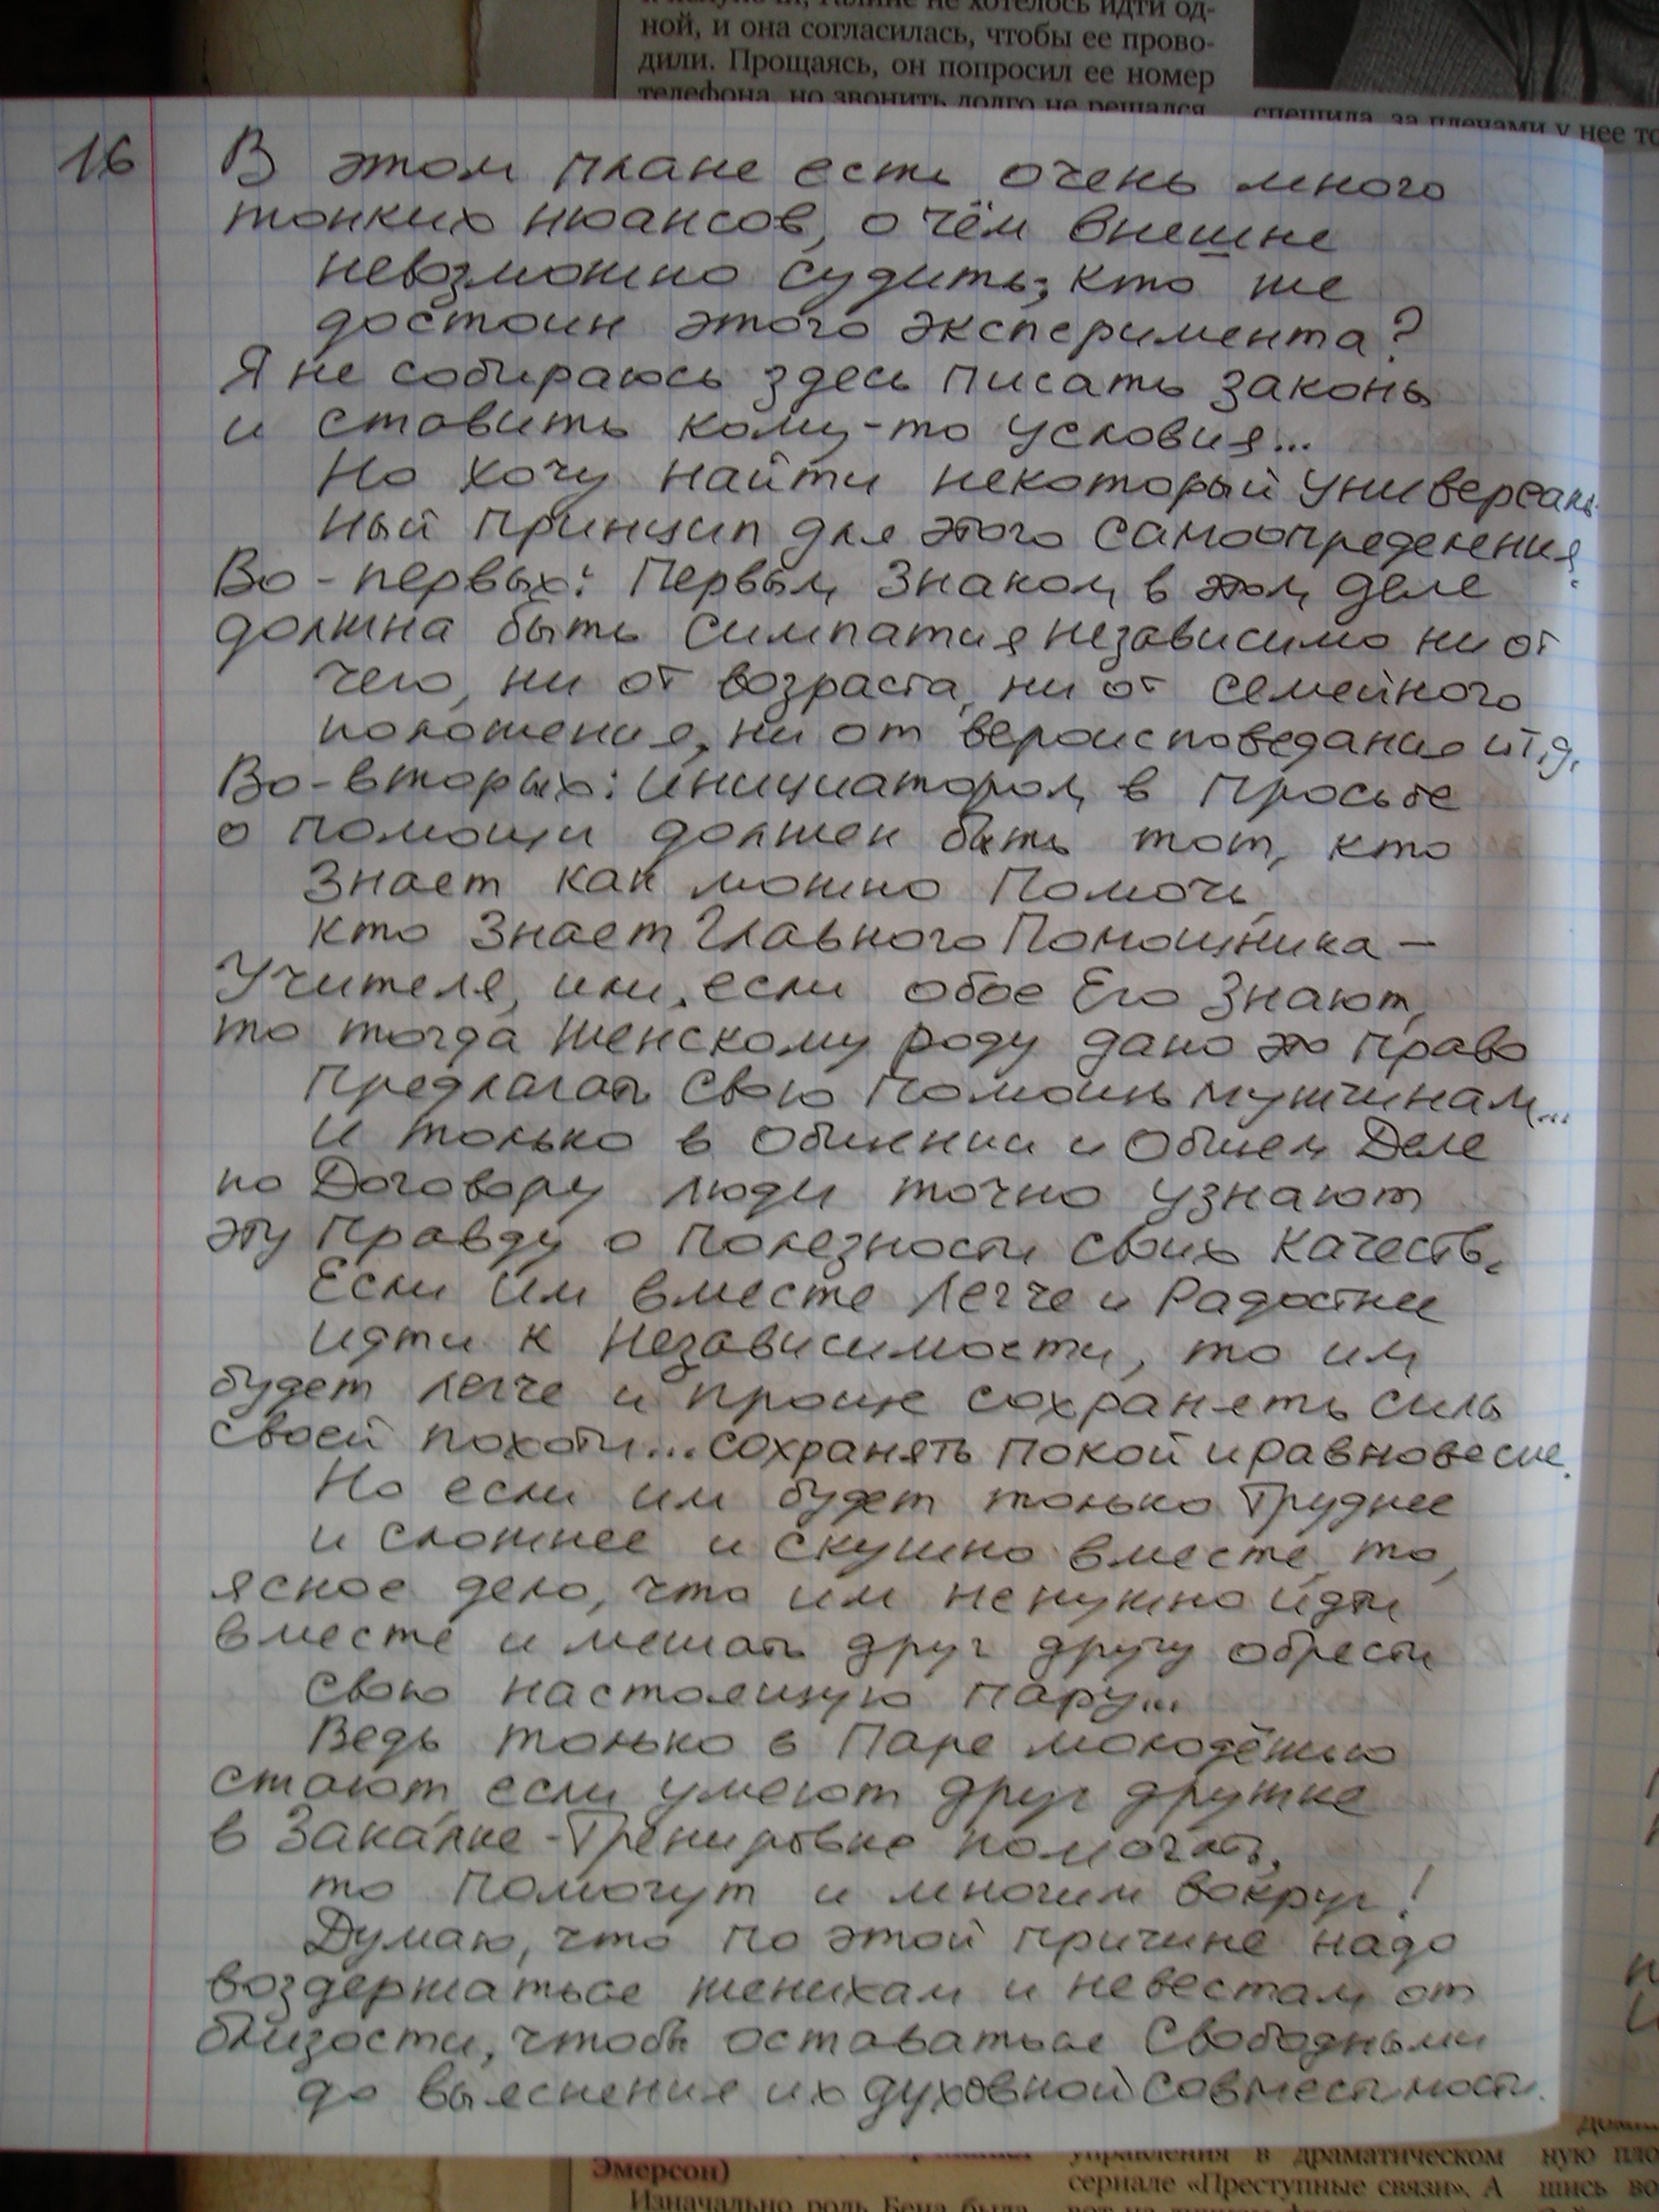 й, Галине не хотелось идти од-
ной, и она согласилась, чтобы ее прово-
дили. Прощаясь, он попросил ее номер
телефона, но звонить долго не решался.
спешила, за плечами у нее то
16
В этом плане есть очень много
тонких нюансов, о чём внешне
невозможно судить; кто же
достоин этого эксперимента?
Я не собираюсь здесь писать законы
и ставить кому-то условия...
Но хочу найти некоторый универсаль-
ный принцип для этого самоопределения.
Во-первых: Первым Знаком в этом деле
должна быть Симпатия независимо ни от
чего, ни от возраста, ни от семейного
положения, ни от вероисповедания и т.д.
Во-вторых: инициатором в Просьбе
о помощи должен быть тот, кто
Знает как можно Помочь,
кто Знает Главного Помощника —
Учителя, или, если обое Его Знают,
то тогда Женскому роду дано это право
предлагать Свою Помощь мужчинам...
И только в Общении и Общем Деле
по Договору люди точно узнают
эту Правду о Полезности Своих Качеств.
Если им вместе Легче и Радостнее
идти к Независимости, то им
будет легче и проще сохранять силы
своей похоти... сохранять покой и равновесие.
Но если им будет только Труднее
и сложнее и скушно вместе, то,
ясное дело, что им не нужно идти
вместе и мешать друг другу обрести
свою настоящую пару...
Ведь только в Паре молодёжью
стают, если умеют друг дружке
в Закалке-Тренировке помогать,
то Помогут и многим вокруг!
Думаю, что по этой причине надо
воздержаться женихам и невестам от
близости, чтобы оставаться Свободными
до выяснения их духовной совместимости.
Эмерсон)
Изначально роль Бена была
управления в драматическом
сериале «Преступные связи». А
ную пло
шись во